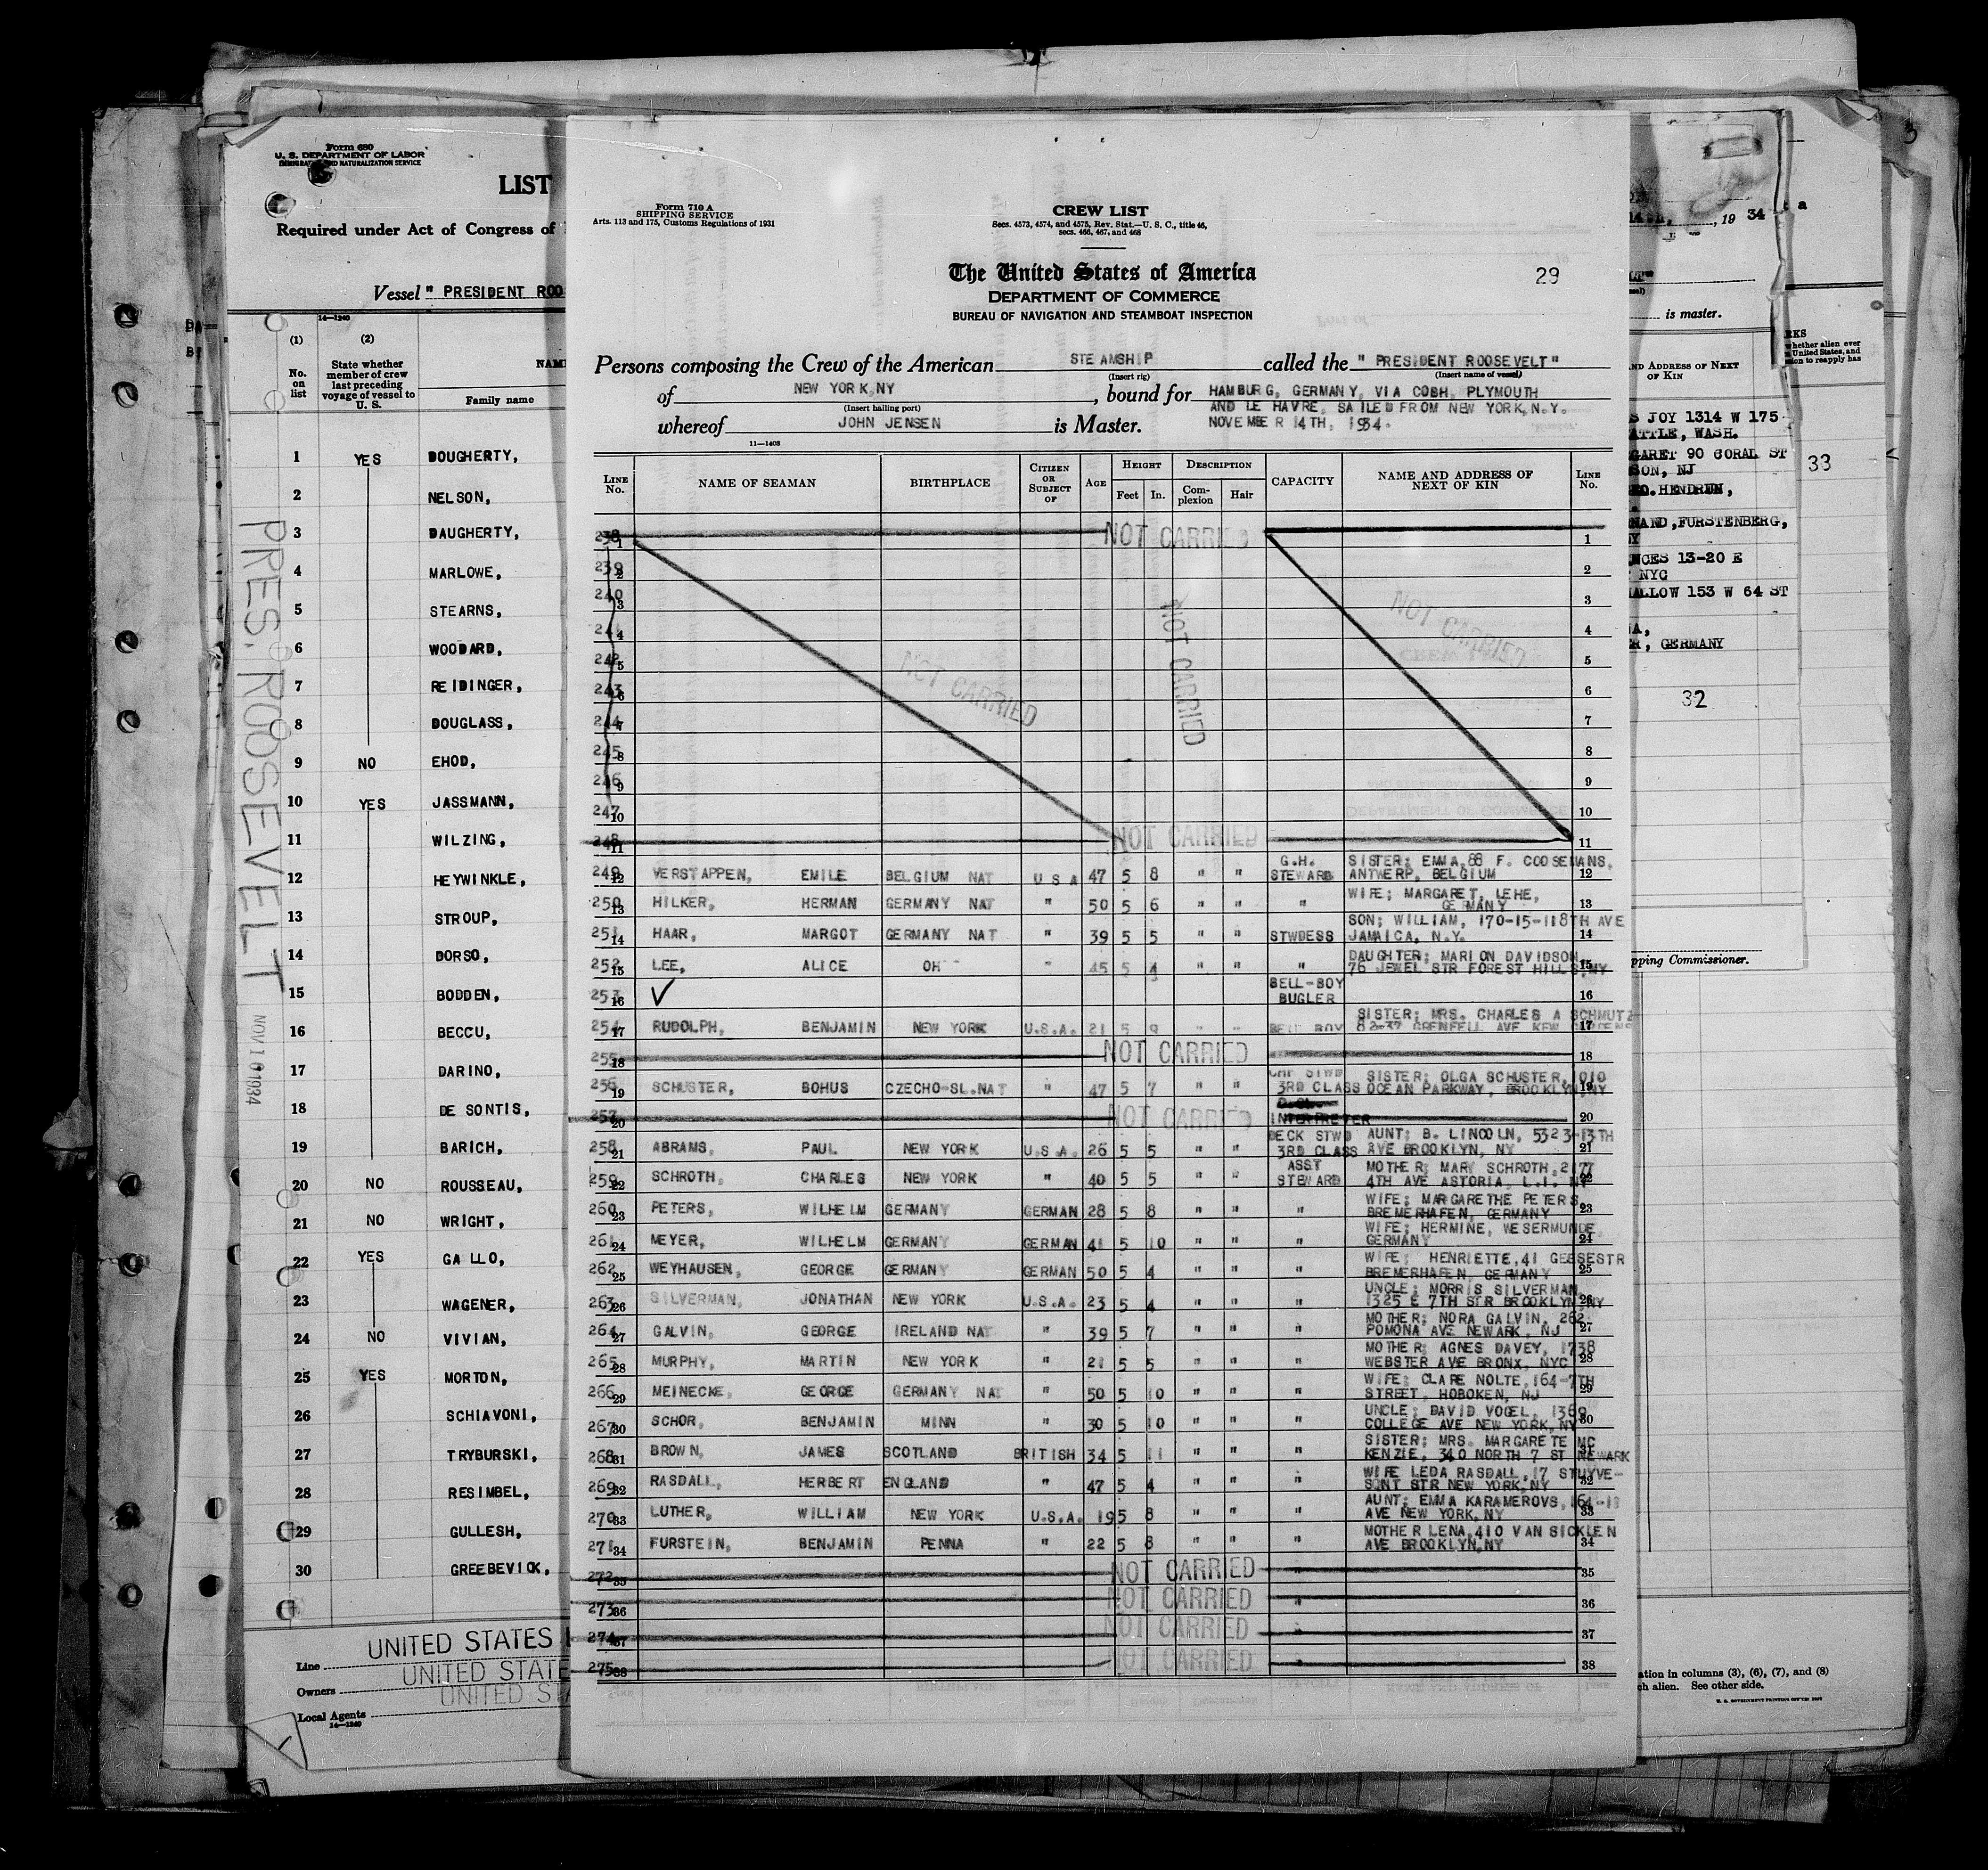 Form 680
U. S. DEPARTMENT OF LABOR
IMMIGRATION AND NATURALIZATION SERVICE
LIST
Required under Act of Congress of
Vessel " PRESIDENT ROO
14—1240
(1) (2)
No. on list
State whether member of crew last preceding voyage of vessel to U. S.
NAM
Family name
1 YES DOUGHERTY,
2 NELSON,
3 DAUGHERTY,
4 MARLOWE,
5 STEARNS,
6 WOODARD,
7 REIDINGER,
8 DOUGLASS,
9 NO EHOD,
10 YES JASSMANN,
11 WILZING,
12 HEYWINKLE,
13 STROUP,
14 DORSO,
15 BODDEN,
16 BECCU,
17 DARINO,
18 DE SONTIS,
19 BARICH,
20 NO ROUSSEAU,
21 NO WRIGHT,
22 YES GALLO,
23 WAGENER,
24 NO VIVIAN,
25 YES MORTON,
26 SCHIAVONI,
27 TRYBURSKI,
28 RESIMBEL,
29 GULLESH,
30 GREEBEVICK,
PRES. ROOSEVELT
NOV 1 1934
Line UNITED STATES
Owners UNITED STATE
Local Agents UNITED ST
14—1240
Form 710 A
SHIPPING SERVICE
Arts. 113 and 175, Customs Regulations of 1931
CREW LIST
Secs. 4573, 4574, and 4575, Rev. Stat.—U. S. C., title 46,
secs. 466, 467, and 468
The United States of America
DEPARTMENT OF COMMERCE
BUREAU OF NAVIGATION AND STEAMBOAT INSPECTION
29
Persons composing the Crew of the American STEAMSHIP called the " PRESIDENT ROOSEVELT"
(Insert rig) (Insert name of vessel)
of NEW YORK,NY , bound for HAMBURG, GERMANY, VIA COBH, PLYMOUTH
(Insert hailing port) AND LE HAVRE, SAILED FROM NEW YORK,N.Y.
whereof JOHN JENSEN is Master. NOVEMBER 14TH, 1934.
11—1408
LINE No. NAME OF SEAMAN BIRTHPLACE CITIZEN OR SUBJECT OF AGE HEIGHT Feet In. DESCRIPTION Complexion Hair CAPACITY NAME AND ADDRESS OF NEXT OF KIN LINE No.
238 1 NOT CARRIED 1
239 2 2
240 3 3
241 4 NOT CARRIED NOT CARRIED 4
242 5 NOT CARRIED 5
243 6 6
244 7 7
245 8 8
246 9 9
247 10 10
248 11 NOT CARRIED 11
249 12 VERSTAPPEN, EMILE BELGIUM NAT U S A 47 5 8 " " G.H. STEWARD SISTER; EMMA,88 F. COOSEMANS, ANTWERP, BELGIUM 12
250 13 HILKER, HERMAN GERMANY NAT " 50 5 6 " " " WIFE; MARGARET, LEHE, GERMANY 13
251 14 HAAR, MARGOT GERMANY NAT " 39 5 5 " " STWDESS SON; WILLIAM, 170-15-118TH AVE JAMAICA, N.Y. 14
252 15 LEE, ALICE OH " 45 5 4 " " " DAUGHTER; MARION DAVIDSON 76 JEWEL STR FOREST HILLS,NY 15
253 16 ✓ BELL-BOY BUGLER 16
254 17 RUDOLPH, BENJAMIN NEW YORK U.S.A. 21 5 9 " " BELL BOY SISTER; MRS. CHARLES A SCHMUTZ 82-37 GRENFELL AVE KEW GARDENS 17
255 18 NOT CARRIED 18
256 19 SCHUSTER, BOHUS CZECHO-SL.NAT " 47 5 7 " " CHF STWD 3RD CLASS SISTER; OLGA SCHUSTER, 1010 OCEAN PARKWAY, BROOKLYN,NY 19
257 20 NOT CARRIED INTERPRETER 20
258 21 ABRAMS, PAUL NEW YORK U.S.A. 26 5 5 " " DECK STWD 3RD CLASS AUNT; B. LINCOLN, 5323-13TH AVE BROOKLYN, NY 21
259 22 SCHROTH, CHARLES NEW YORK " 40 5 5 " " ASST STEWARD MOTHER; MARY SCHROTH,2177 4TH AVE ASTORIA, L.I. NY 22
260 23 PETERS, WILHELM GERMANY GERMAN 28 5 8 " " " WIFE; MARGARETHE PETERS, BREMERHAFEN, GERMANY 23
261 24 MEYER, WILHELM GERMANY GERMAN 41 5 10 " " " WIFE; HERMINE, WESERMUNDE, GERMANY 24
262 25 WEYHAUSEN, GEORGE GERMANY GERMAN 50 5 4 " " " WIFE; HENRIETTE,41 GEESESTR BREMERHAFEN, GERMANY 25
263 26 SILVERMAN, JONATHAN NEW YORK U.S.A. 23 5 4 " " " UNCLE; MORRIS SILVERMAN, 1325 E 7TH STR BROOKLYN,NY 26
264 27 GALVIN, GEORGE IRELAND NAT " 39 5 7 " " " MOTHER; NORA GALVIN, 262 POMONA AVE NEWARK, NJ 27
265 28 MURPHY, MARTIN NEW YORK " 21 5 5 " " " MOTHER; AGNES DAVEY, 1738 WEBSTER AVE BRONX, NYC 28
266 29 MEINECKE, GEORGE GERMANY NAT " 50 5 10 " " " WIFE; CLARE NOLTE,164-7TH STREET, HOBOKEN, NJ 29
267 30 SCHOR, BENJAMIN MINN " 30 5 10 " " " UNCLE; DAVID VOGEL, 1369 COLLEGE AVE NEW YORK,NY 30
268 31 BROWN, JAMES SCOTLAND BRITISH 34 5 11 " " " SISTER; MRS. MARGARETE MC KENZIE, 340 NORTH 7 ST NEWARK 31
269 32 RASDALL, HERBERT ENGLAND " 47 5 4 " " " WIFE LEDA RASDALL,17 STUYVE- SONT STR NEW YORK,NY 32
270 33 LUTHER, WILLIAM NEW YORK U.S.A. 19 5 8 " " " AUNT; EMMA KARAMEROVS, AVE NEW YORK,NY 33
271 34 FURSTEIN, BENJAMIN PENNA " 22 5 8 " " " MOTHER LENA,410 VAN SICKLEN AVE BROOKLYN,NY 34
272 35 NOT CARRIED " 35
273 36 NOT CARRIED " 36
274 37 NOT CARRIED " 37
275 38 NOT CARRIED " 38
, 19 34
is master.
ND ADDRESS OF NEXT OF KIN
S JOY 1314 W 175
ATTLE, WASH.
GARET 90 CORAL ST
SON, NJ
HENDRUN,
NAND,FURSTENBERG,
NY
NCES 13-20 E
NYC
ALLOW 153 W 64 ST
NA,
R, GERMANY
32
33
3
RKS
whether alien ever
United States, and
sion to reapply has
pping Commissioner.
ation in columns (3), (6), (7), and (8)
ch alien. See other side.
U. S. GOVERNMENT PRINTING OFFICE